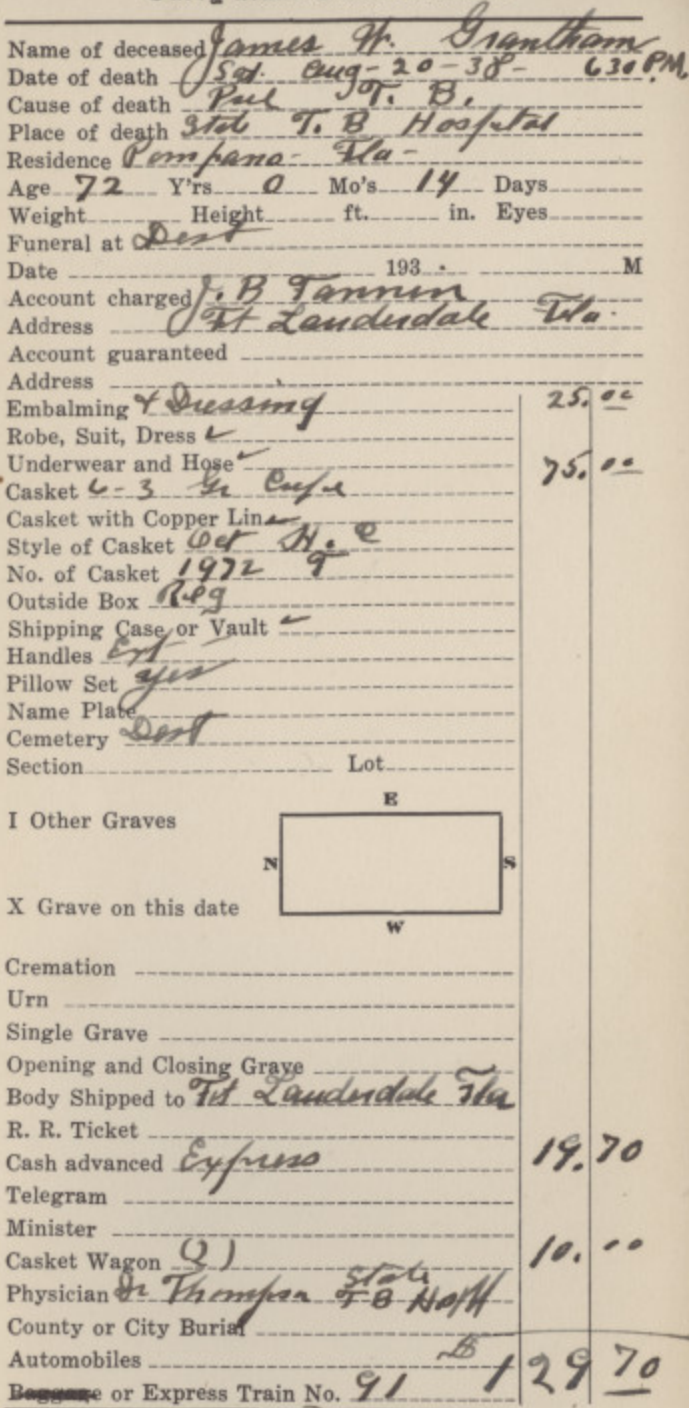 Name of deceased James W. Grantham
Date of death Sat. Aug-20-38- 630 P.M.
Cause of death Pul T. B.
Place of death State T. B Hospital
Residence Pompano- Fla-
Age 72 Y'rs 0 Mo's 14 Days
Weight Height ft. in. Eyes
Funeral at Dest
Date 193 . M
Account charged J. B Tannen
Address Ft Lauderdale Fla.
Account guaranteed
Address
Embalming & Dressing 25.00
Robe, Suit, Dress ✓
Underwear and Hose ✓ 75.00
Casket 6-3 Gr Crepe
Casket with Copper Lin
Style of Casket Oct H.
No. of Casket 1972
Outside Box Reg
Shipping Case or Vault
Handles Ext
Pillow Set yes
Name Plate
Cemetery Dest
Section Lot
E
I Other Graves
N S
X Grave on this date
W
Cremation
Urn
Single Grave
Opening and Closing Grave
Body Shipped to Ft Lauderdale Fla
R. R. Ticket
Cash advanced Express 19.70
Telegram
Minister
Casket Wagon (2) 10.00
Physician Dr Thompson State T B Hospt
County or City Burial
Automobiles 129 70
Baggage or Express Train No. 91